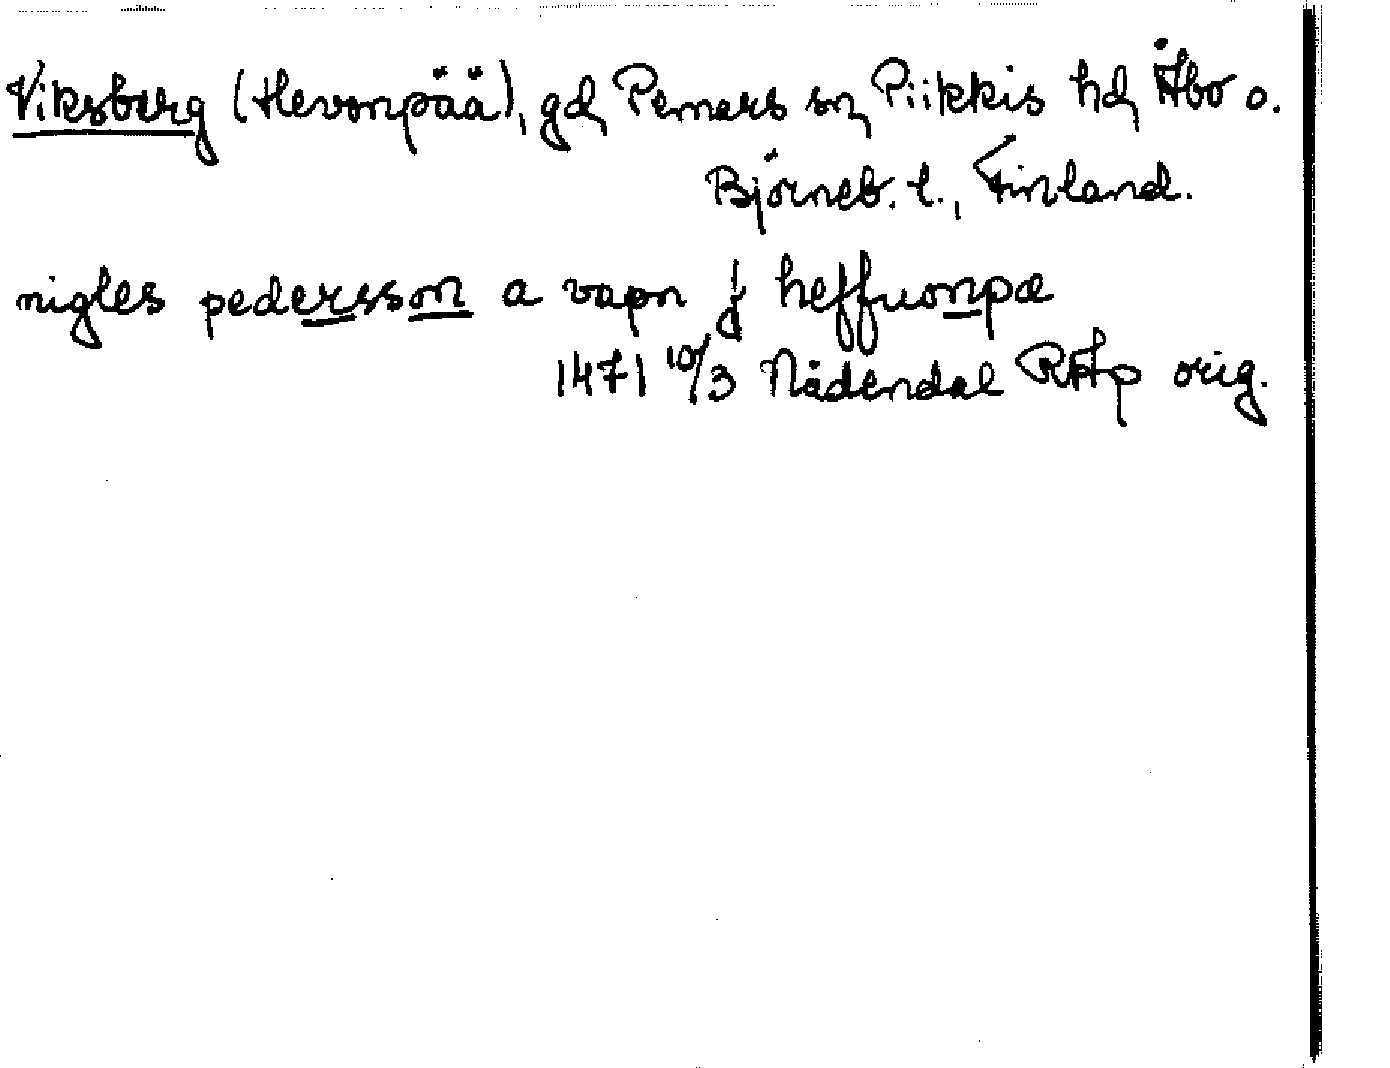 Viksberg (Hevonpää), gd, Pemars sn, Piikkis hd, Åbo o.
Björneb. l., Finland.
nigles pedersson a vapn j heffuonpæ
1471 10/3 Nådendal RAp orig.